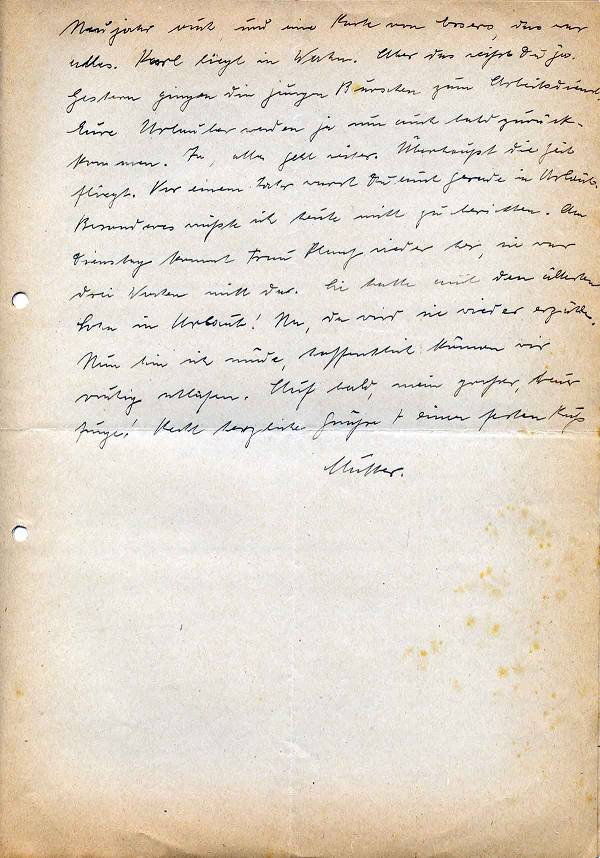 Neujahr mit, und eine Karte von, das war
alles. Karl liegt in. Aber das weißt Du ja.
Gestern gingen die jungen Burschen zum Arbeitsdienst,
Eure Urlauber werden ja nun auch bald zurück-
kommen. Ja, alles geht weiter. Überhaupt die Zeit
fliegt. Vor einem Jahr warst Du auch gerade in Urlaub.
Besonderes wüßte ich heute nicht zu berichten. Am
Dienstag kommt Frau wieder her, sie war
drei Wochen nicht da. Sie hatte mit den ältesten
Sohn in Urlaub! Na, da wird sie wieder erzählen.
Nun bin ich müde, hoffentlich können wir
ruhig schlafen. Auf bald, mein großer, lieber
Junge! Recht herzliche Grüße + einen festen Kuß
Mutter.